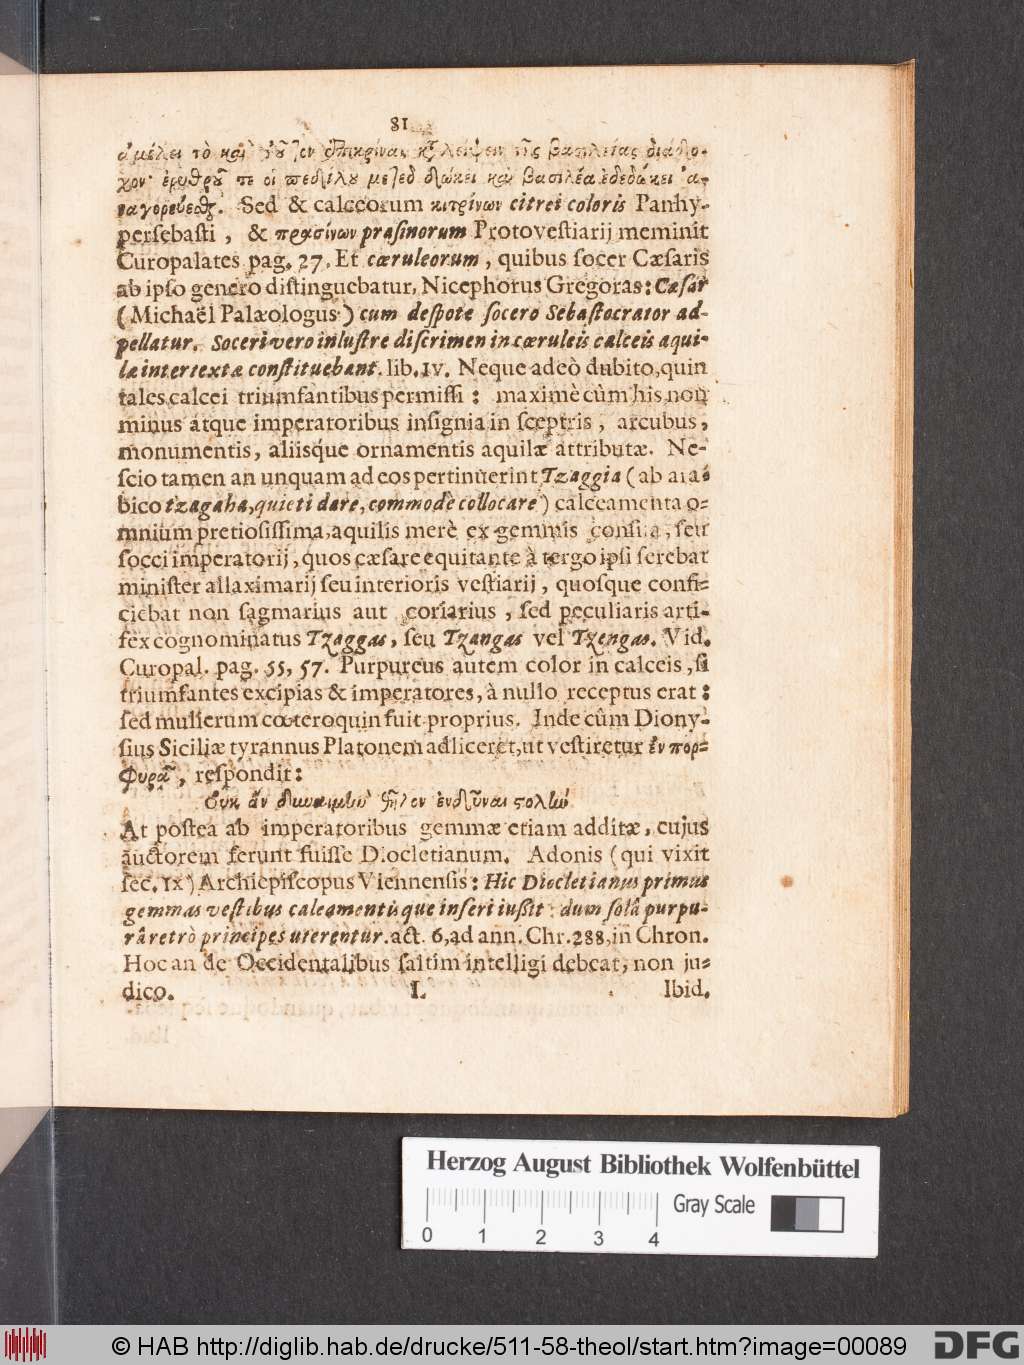 81
μέλει τὸ καὶ βασιλείας
πεδίλου καὶ βασιλέα
Sed & calceorum κιτρίνων citrei coloris Panhy-
persebasti, & πρασίνων prasinorum Protovestiarij meminit
Curopalates pag. 27. Et cæruleorum, quibus socer Cæsaris
ab ipso genero distinguebatur, Nicephorus Gregoras: Cæsar
(Michaël Palæologus) cum despote socero Sebastocrator ad-
pellatur. Soceri vero inlustre discrimen in cæruleis calceis aqui-
læ intertextæ constituebant. lib. IV. Neque adeò dubito, quin
tales calcei triumfantibus permissi: maximè cùm his non
minus atque imperatoribus insignia in sceptris, arcubus,
monumentis, aliisque ornamentis aquilæ attributæ. Ne-
scio tamen an unquam ad eos pertinuerint Tzaggia (ab ara-
bico tzagaha, quieti dare, commodè collocare) calceamenta o-
mnium pretiosissima, aquilis merè ex gemmis consita, seu
socci imperatorij, quos cæsare equitante à tergo ipsi ferebat
minister allaximarij seu interioris vestiarij, quosque confi-
ciebat non sagmarius aut coriarius, sed peculiaris arti-
fex cognominatus Tzaggas, seu Tzangas vel Tzengas. Vid.
Curopal. pag. 55, 57. Purpureus autem color in calceis, si
triumfantes excipias & imperatores, à nullo receptus erat:
sed mulierum cœteroquin fuit proprius. Inde cùm Diony-
sius Siciliæ tyrannus Platonem adliceret, ut vestiretur ἐν πορ-
φυρᾷ, respondit:
Οὐκ ἂν δυναίμην θῆλυν ἐνδῦναι στολὴν
At postea ab imperatoribus gemmæ etiam additæ, cujus
auctorem ferunt fuisse Diocletianum. Adonis (qui vixit
sec. IX) Archiepiscopus Viennensis: Hic Diocletianus primus
gemmas vestibus caleamentisque inseri iußit: dum solâ purpu-
râ retrò principes uterentur. act. 6, ad ann. Chr. 288, in Chron.
Hoc an de Occidentalibus saltim intelligi debeat, non ju-
dico. L Ibid.
Herzog August Bibliothek Wolfenbüttel
Gray Scale
0 1 2 3 4
© HAB http://diglib.hab.de/drucke/511-58-theol/start.htm?image=00089
DFG